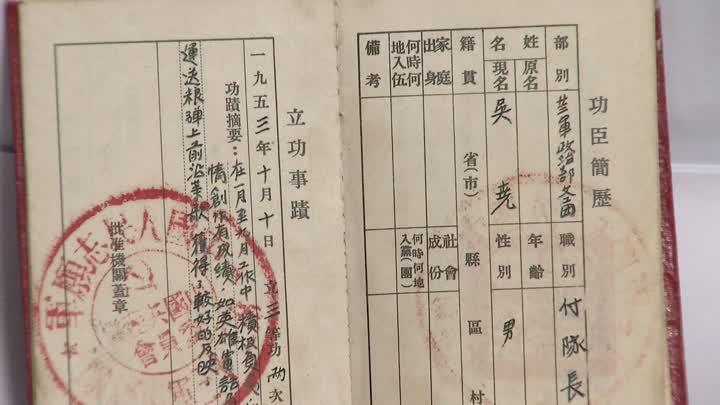 功臣簡歷
部別
軍政治部文工团
職別
付隊長
姓名
原名
現名
吳堯
年齡
性別
男
籍貫
省(市)
縣
區
村
家庭出身
社會成份
何時何地入伍
何時何地入黨(團)
備考
立功事蹟
一九五三年十月十日
立三等功兩次
功蹟摘要：在一月至九月工作中積極負
情創作有成績 如英雄黃
運送粮彈上前沿等歌 獲得了較好的反映。
批准機關蓋章
人民志願軍